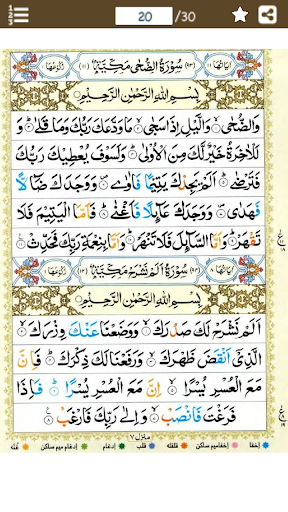 20 /30
اٰيَاتُهَا ١١ (٩٣) سُوْرَةُ الضُّحٰى مَكِّيَّةٌ (١١) رُكُوْعُهَا ١
بِسْمِ اللّٰهِ الرَّحْمٰنِ الرَّحِيْمِ
وَالضُّحٰى ۙ وَالَّيْلِ اِذَا سَجٰى ۙ مَا وَدَّعَكَ رَبُّكَ وَمَا قَلٰى ؕ
وَلَلْاٰخِرَةُ خَيْرٌ لَّكَ مِنَ الْاُوْلٰى ؕ وَلَسَوْفَ يُعْطِيْكَ رَبُّكَ
فَتَرْضٰى ؕ اَلَمْ يَجِدْكَ يَتِيْمًا فَاٰوٰى ۪ وَوَجَدَكَ ضَآلًّا
فَهَدٰى ۪ وَوَجَدَكَ عَآئِلًا فَاَغْنٰى ؕ فَاَمَّا الْيَتِيْمَ فَلَا
تَقْهَرْ ؕ وَاَمَّا السَّآئِلَ فَلَا تَنْهَرْ ؕ وَاَمَّا بِنِعْمَةِ رَبِّكَ فَحَدِّثْ
اٰيَاتُهَا ٨ (٩٤) سُوْرَةُ اَلَمْ نَشْرَحْ مَكِّيَّةٌ (١٢) رُكُوْعُهَا ١
بِسْمِ اللّٰهِ الرَّحْمٰنِ الرَّحِيْمِ
اَلَمْ نَشْرَحْ لَكَ صَدْرَكَ ۙ وَوَضَعْنَا عَنْكَ وِزْرَكَ ۙ
الَّذِيْٓ اَنْقَضَ ظَهْرَكَ ۙ وَرَفَعْنَا لَكَ ذِكْرَكَ ؕ فَاِنَّ
مَعَ الْعُسْرِ يُسْرًا ۙ اِنَّ مَعَ الْعُسْرِ يُسْرًا ؕ فَاِذَا
فَرَغْتَ فَانْصَبْ ۙ وَاِلٰى رَبِّكَ فَارْغَبْ
منزل ٧
إخفا إخفاميم ساكن قلقله قلب إدغام إدغام ميم ساكن غُنّه